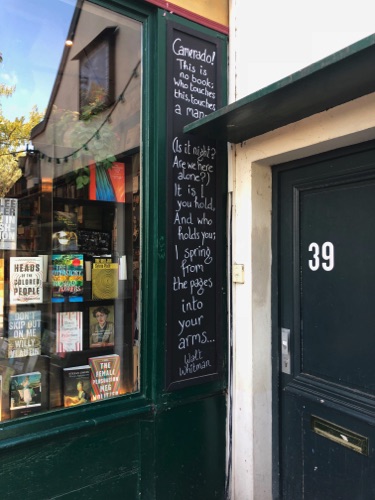 Camerado!
This is
no book;
who touches
this, touches
a man.
(Is it night?
Are we here
alone?)
It is I
you hold,
And who
holds you;
I spring
from
the pages
into
your
arms...
Walt
Whitman
39
HEADS
OF THE
COLORED
PEOPLE
DON'T
SKIP OUT
ON ME
WILLY
VLAUTIN
THE
FEMALE
PERSUASION
MEG
WOLITZER